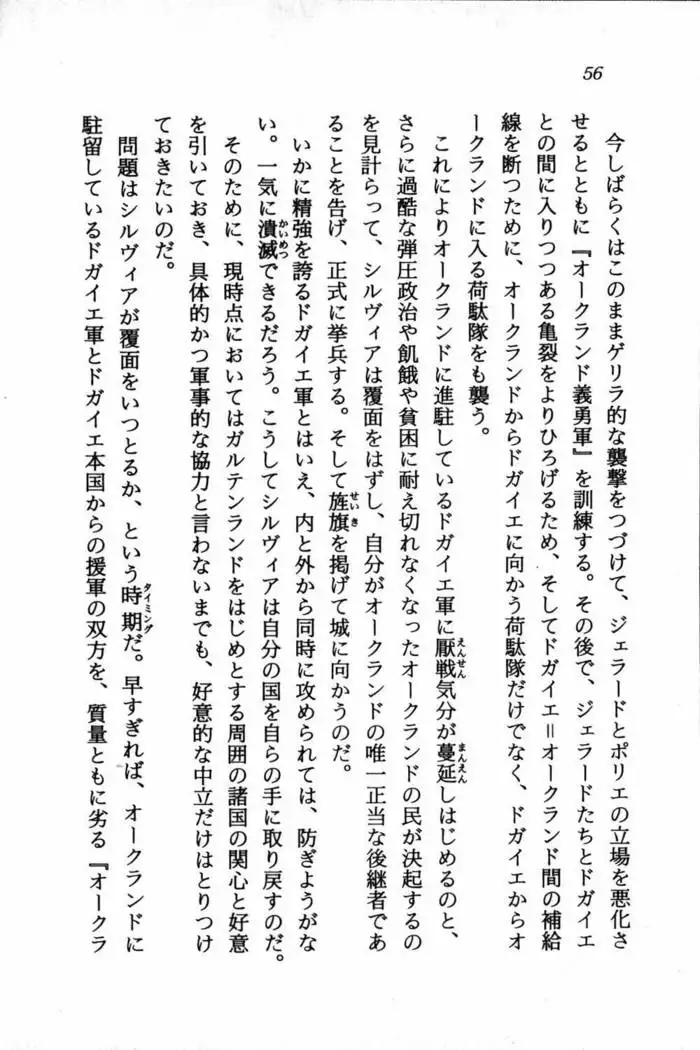 56
今しばらくはこのままゲリラ的な襲撃をつづけて、ジェラードとポリエの立場を悪化さ
せるとともに『オークランド義勇軍』を訓練する。その後で、ジェラードたちとドガイエ
との間に入りつつある亀裂をよりひろげるため、そしてドガイエ＝オークランド間の補給
線を断つために、オークランドからドガイエに向かう荷駄隊だけでなく、ドガイエからオ
ークランドに入る荷駄隊をも襲う。
これによりオークランドに進駐しているドガイエ軍に厭戦気分が蔓延しはじめるのと、
さらに過酷な弾圧政治や飢餓や貧困に耐え切れなくなったオークランドの民が決起するの
を見計らって、シルヴィアは覆面をはずし、自分がオークランドの唯一正当な後継者であ
ることを告げ、正式に挙兵する。そして旌旗を掲げて城に向かうのだ。
いかに精強を誇るドガイエ軍とはいえ、内と外から同時に攻められては、防ぎようがな
い。一気に潰滅できるだろう。こうしてシルヴィアは自分の国を自らの手に取り戻すのだ。
そのために、現時点においてはガルテンランドをはじめとする周囲の諸国の関心と好意
を引いておき、具体的かつ軍事的な協力と言わないまでも、好意的な中立だけはとりつけ
ておきたいのだ。
問題はシルヴィアが覆面をいつとるか、という時期だ。早すぎれば、オークランドに
駐留しているドガイエ軍とドガイエ本国からの援軍の双方を、質量ともに劣る『オークラ
えんせん
まんえん
せいき
かいめつ
タイミング